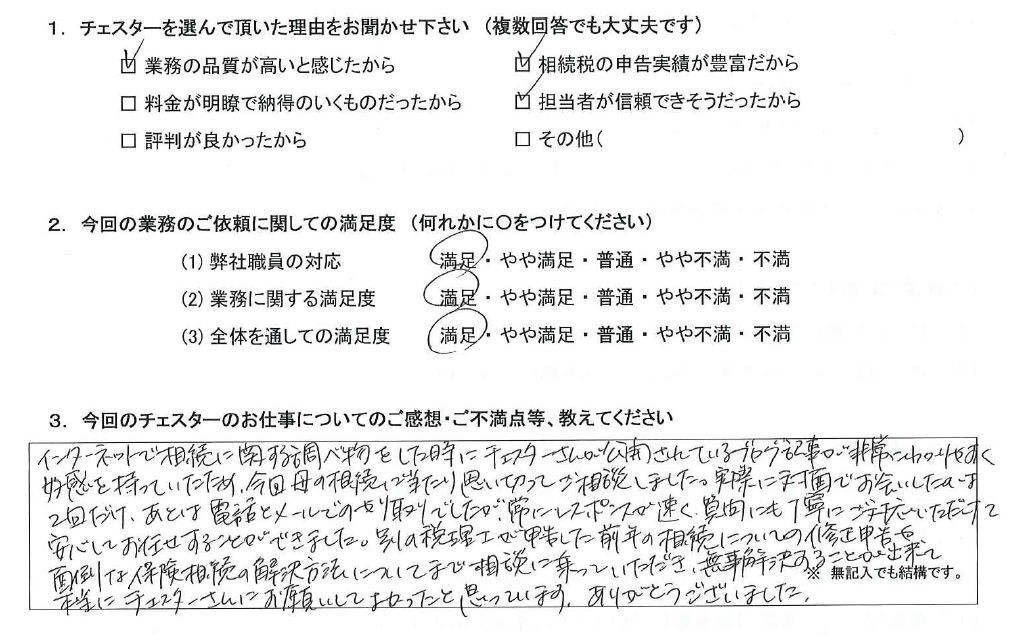 1. チェスターを選んで頂いた理由をお聞かせ下さい (複数回答でも大丈夫です)
☑ 業務の品質が高いと感じたから ☑ 相続税の申告実績が豊富だから
□ 料金が明瞭で納得のいくものだったから ☑ 担当者が信頼できそうだったから
□ 評判が良かったから □ その他( )
2. 今回の業務のご依頼に関しての満足度 (何れかに〇をつけてください)
(1) 弊社職員の対応 満足・やや満足・普通・やや不満・不満
(2) 業務に関する満足度 満足・やや満足・普通・やや不満・不満
(3) 全体を通しての満足度 満足・やや満足・普通・やや不満・不満
3. 今回のチェスターのお仕事についてのご感想・ご不満点等、教えてください
インターネットで相続に関する調べ物をした時にチェスターさんが公開されているブログ記事が非常にわかりやすく
好感を持っていたため、今回母の相続に当たり思い切ってご相談しました。実際に対面でお会いしたのは
2回だけ、あとは電話とメールでのやり取りでしたが、常にレスポンスが速く、質問にも丁寧にご対応いただけて
安心してお任せすることができました。別の税理士が申告した前年の相続についての修正申告や
面倒な保険相続の解決方法についてまで相談に乗っていただき、無事解決することが出来て
本当にチェスターさんにお願いしてよかったと思っています。ありがとうございました。
※ 無記入でも結構です。